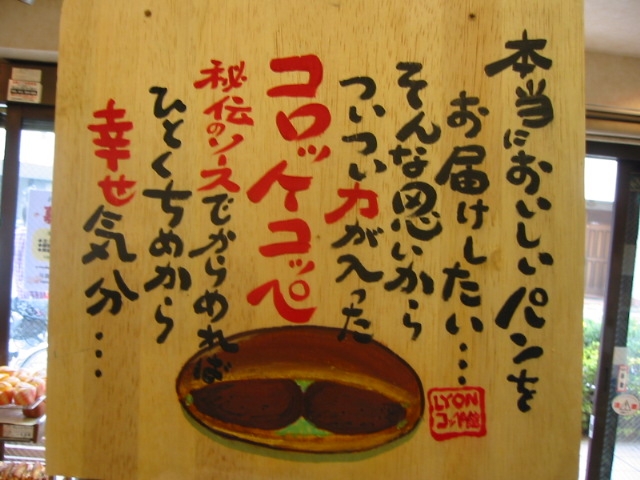 本当においしいパンを
お届けしたい…
そんな思いから
ついつい力が入った
コロッケコッペ
秘伝のソースでからめれば
ひとくちめから
幸せ気分…
LYON